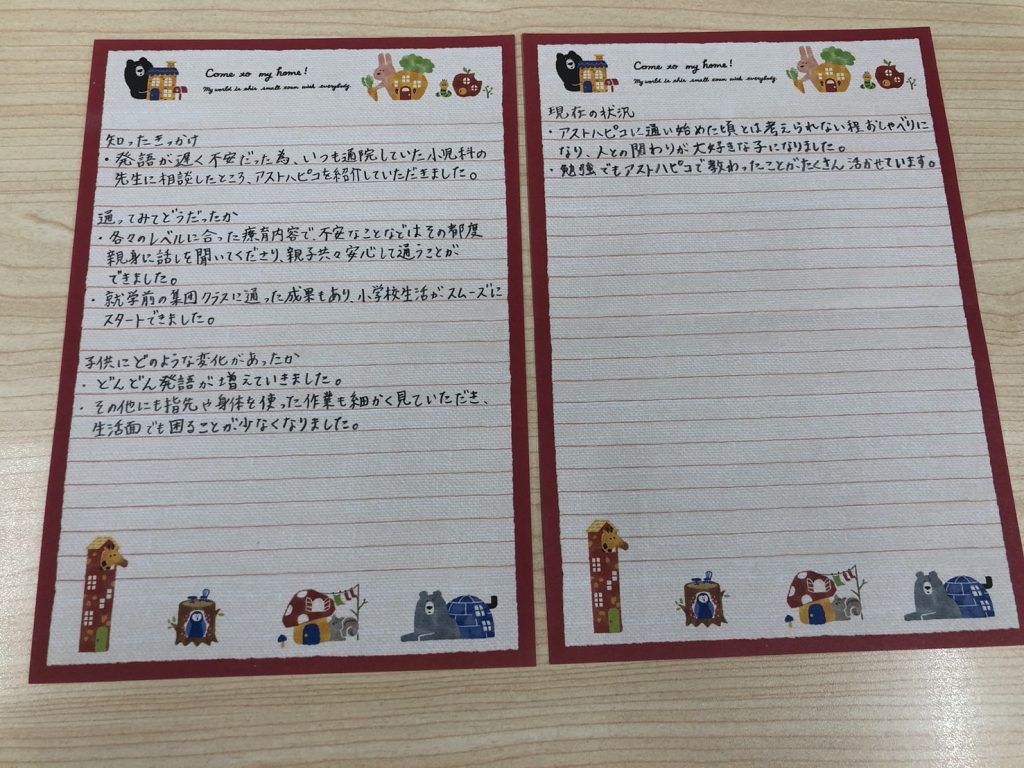 Come to my home!
My world is this small town with everybody.
知ったきっかけ
・発語が遅く不安だった為、いつも通院していた小児科の
先生に相談したところ、アストハピコを紹介していただきました。
通ってみてどうだったか
・各々のレベルに合った療育内容で、不安なことなどはその都度
親身に話しを聞いてくださり、親子共々安心して通うことが
できました。
・就学前の集団クラスに通った成果もあり、小学校生活がスムーズに
スタートできました。
子供にどのような変化があったか
・どんどん発語が増えていきました。
・その他にも指先や身体を使った作業も細かく見ていただき、
生活面でも困ることが少なくなりました。
Come to my home!
My world is this small town with everybody.
現在の状況
・アストハピコに通い始めた頃とは考えられない程おしゃべりに
なり、人との関わりが大好きな子になりました。
・勉強でもアストハピコで教わったことがたくさん活かせています。